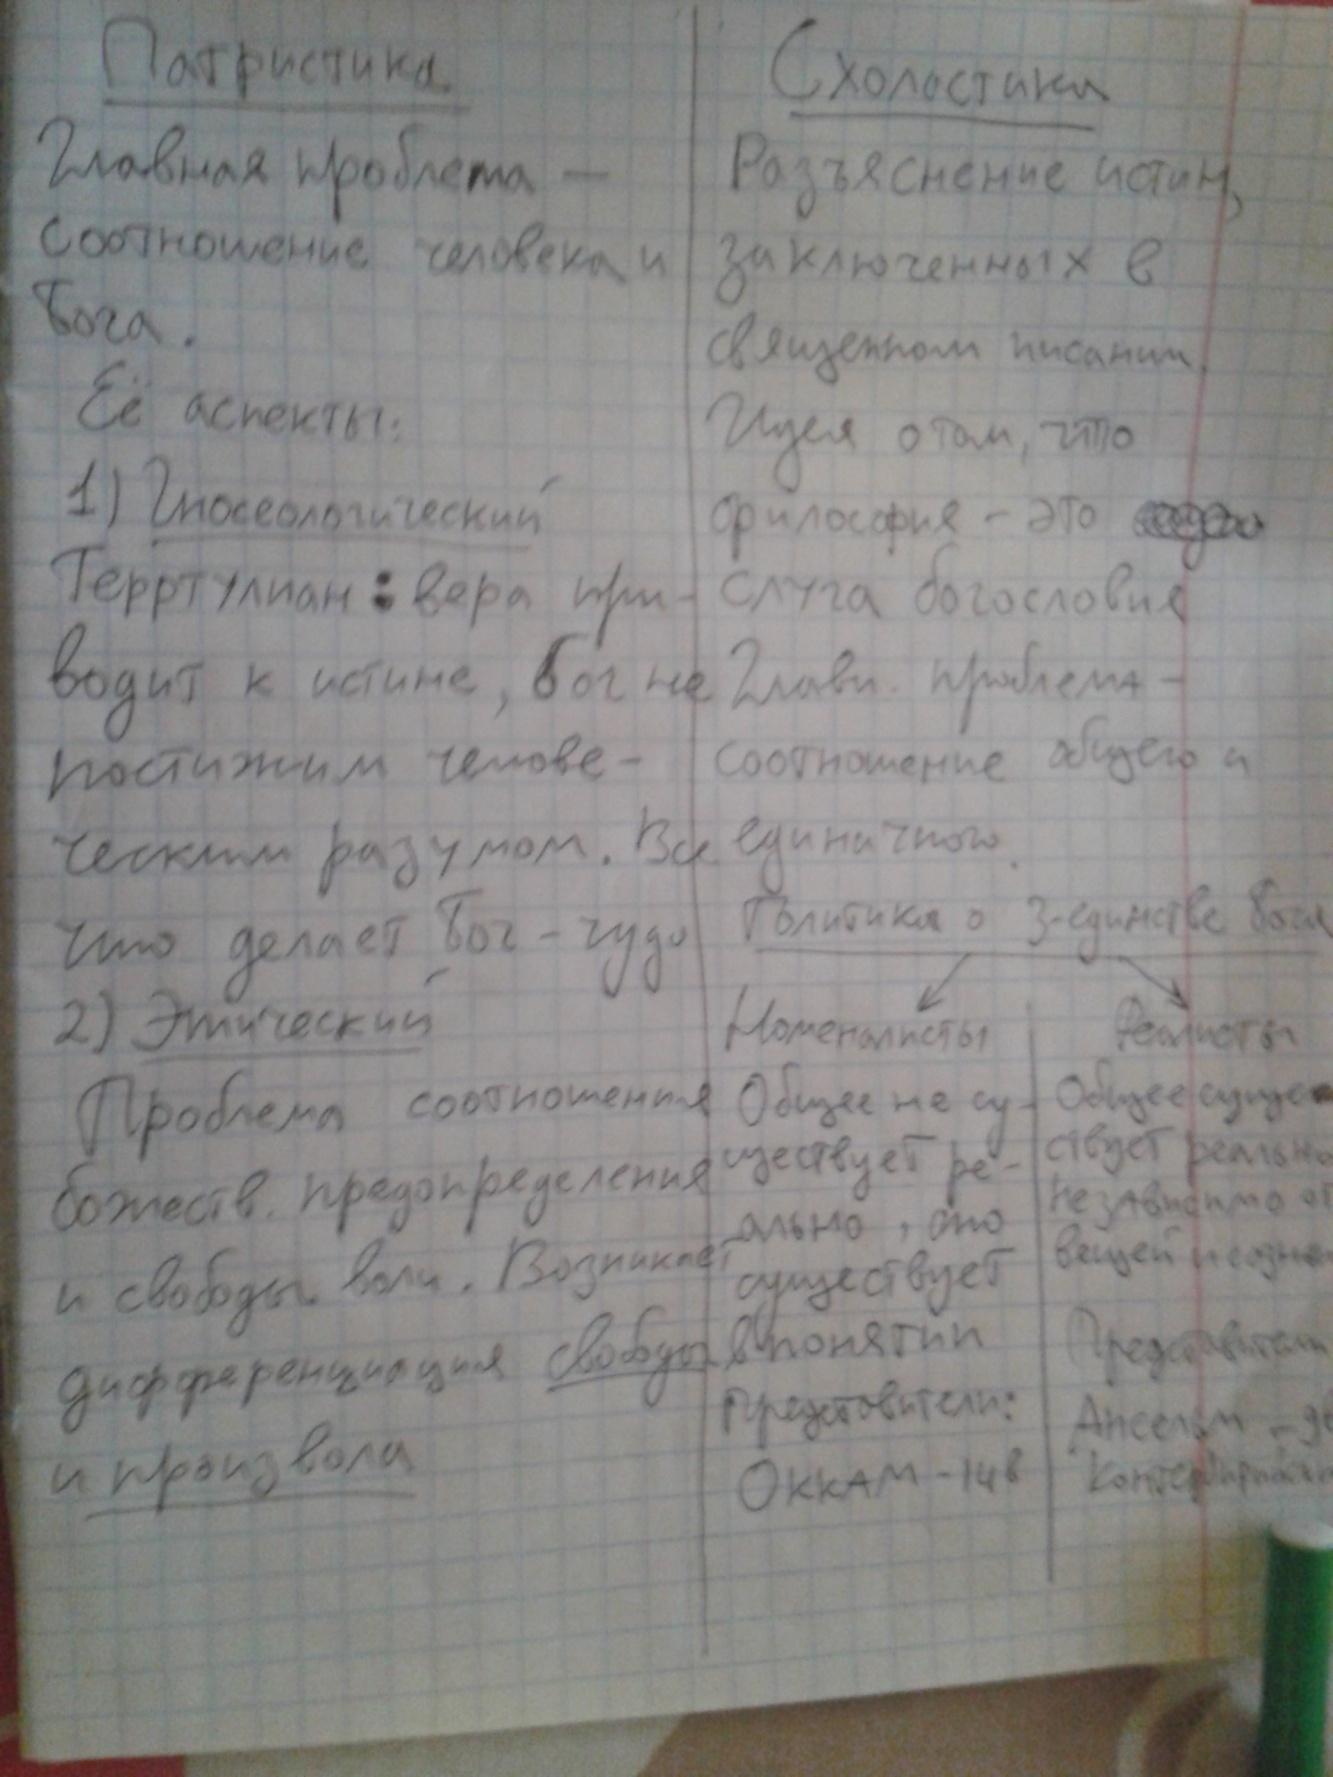 Патристика
Главная проблема —
соотношение человека и
Бога.
Её аспекты:
1) Гносеологический
Терртулиан: вера при-
водит к истине, Бог не
постижим челове-
ческим разумом. Все
что делает Бог - чудо
2) Этический
Проблема соотношения
божеств. предопределения
и свободы воли. Возникает
дифференциация свободы
и произвола
Схоластика
Разъяснение истин,
заключенных в
священном писании
Идея о том, что
философия - это
слуга богословия
Главн. проблема -
соотношение общего и
единичного.
Политика о 3-единстве Бога
Номеналисты
Общее не су-
ществует ре-
ально, оно
существует
в понятии
Представители:
ОККАМ - 14в
Реалисты
Общее суще
ствует реально
независимо от
вещей и
Представители
Ансельм -